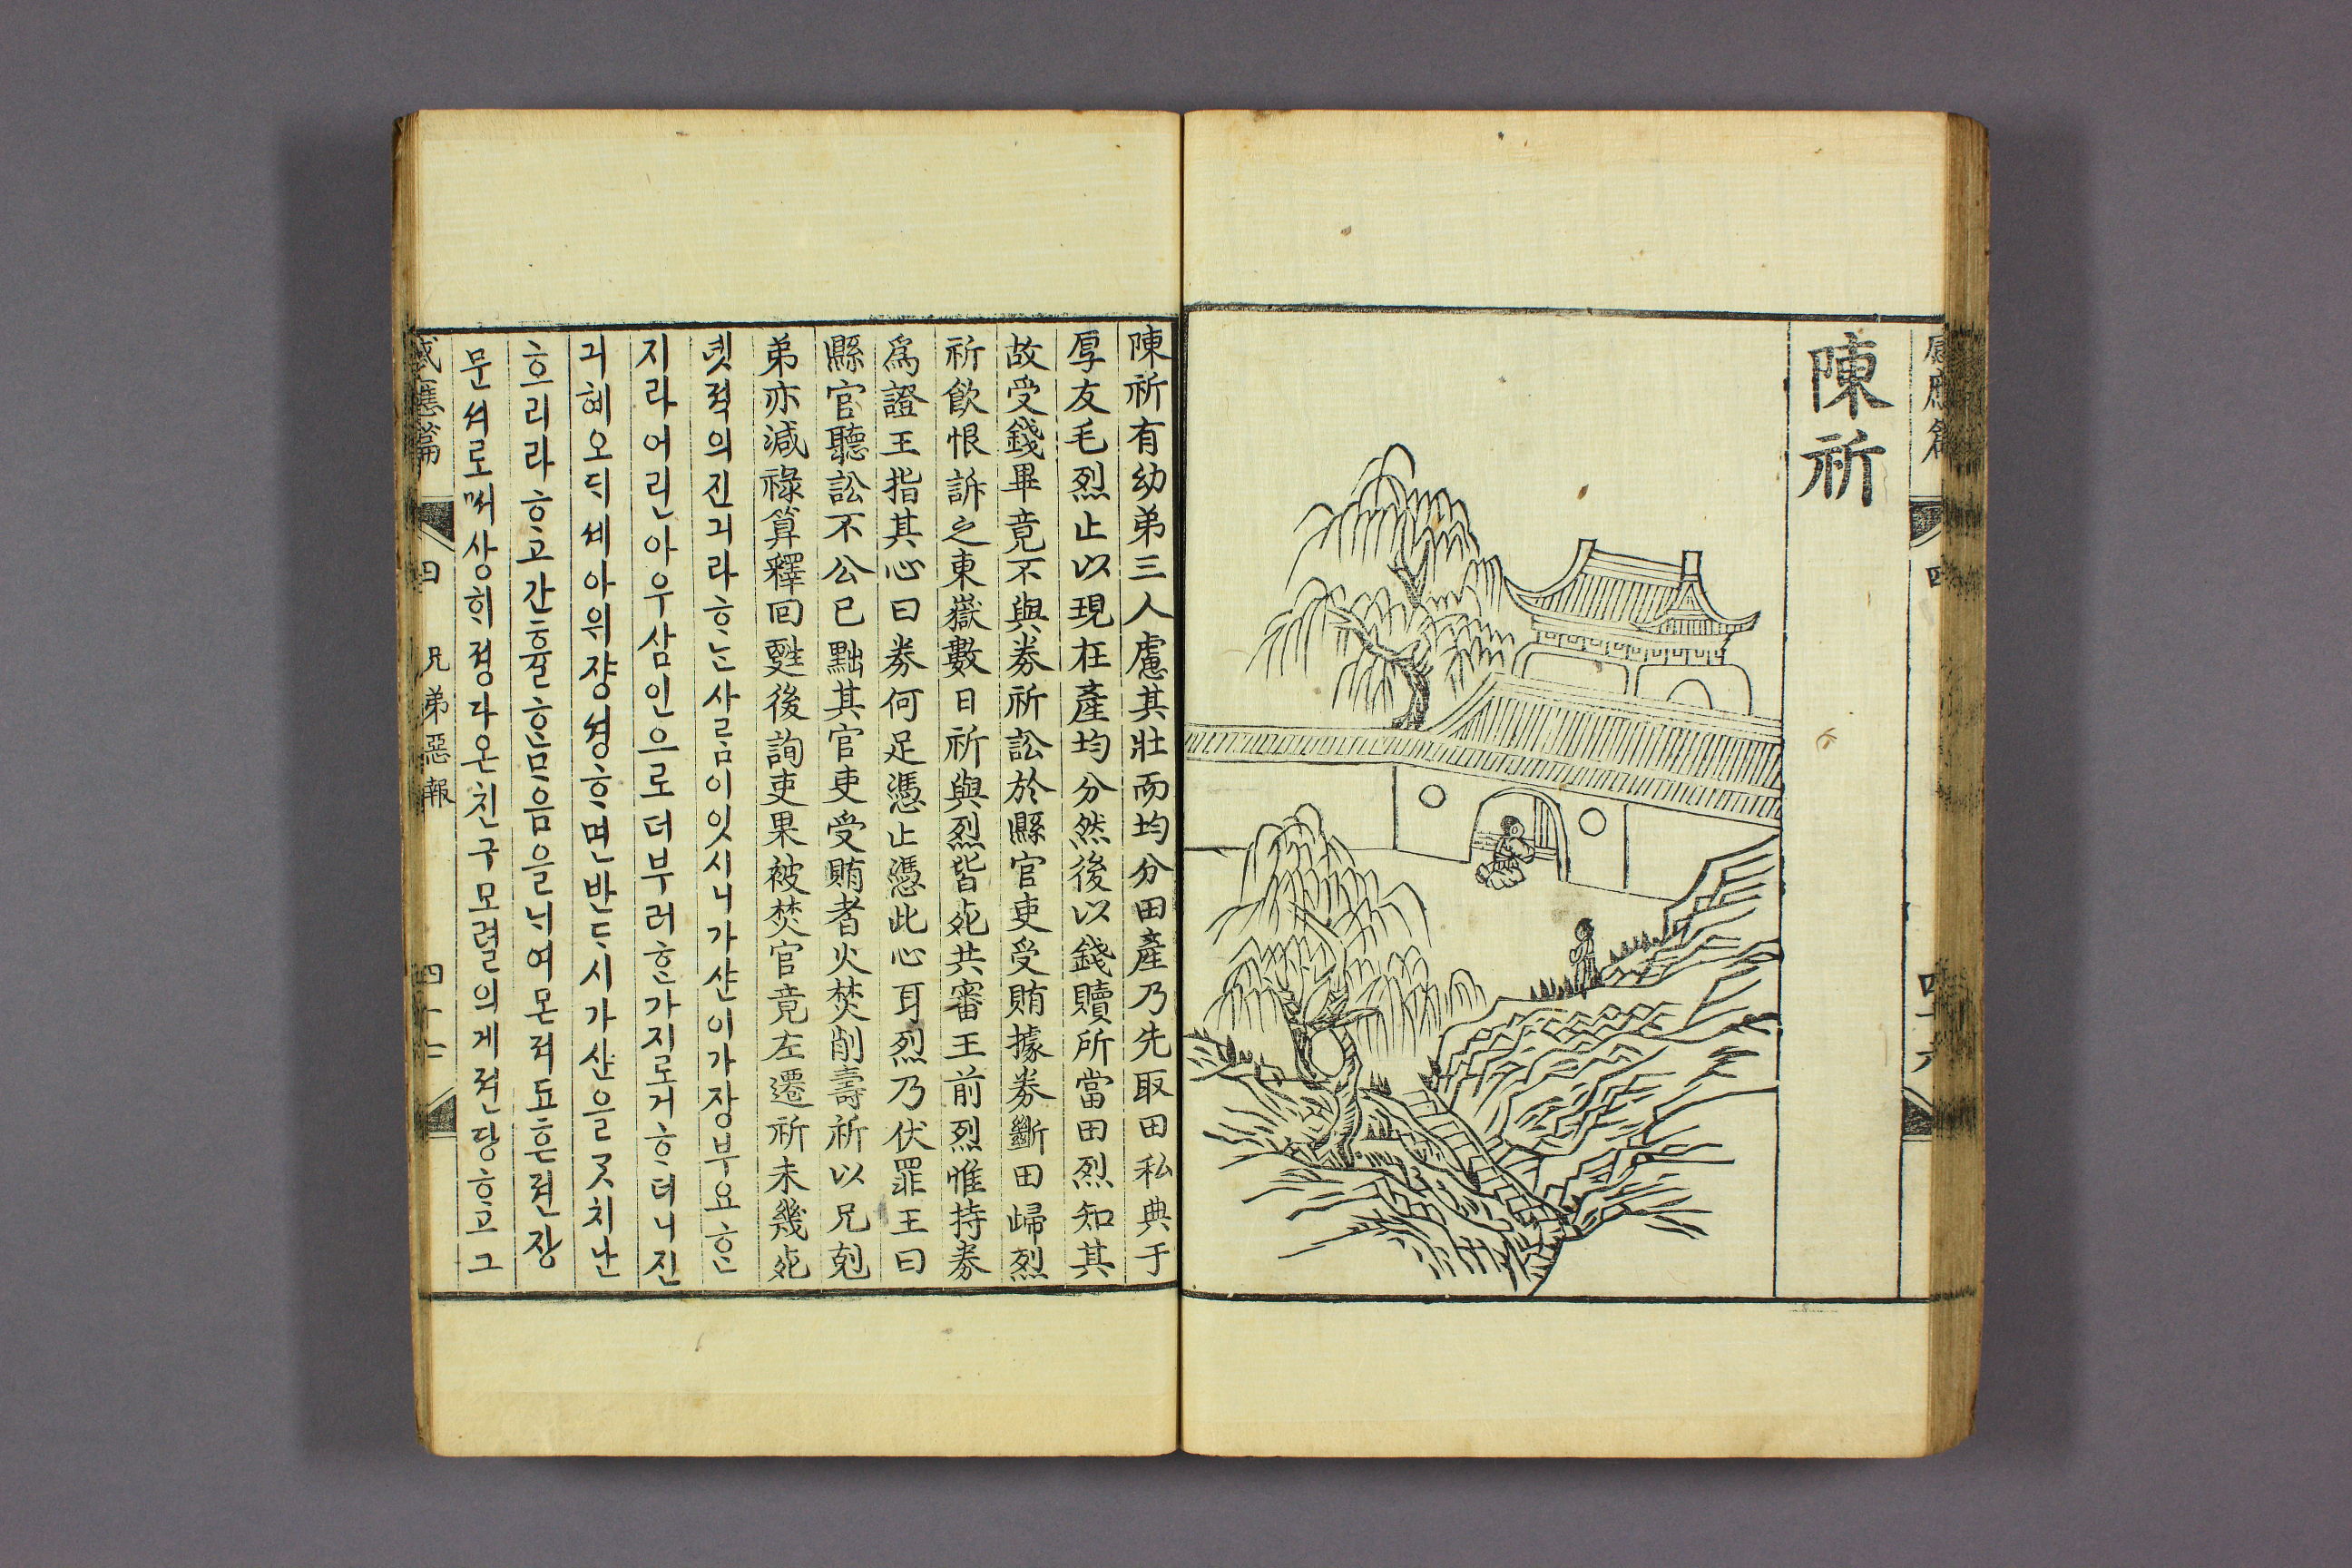 感應篇 四 四十六
陳祈
陳祈有幼弟三人慮其壯而均分田產乃先取田私典于
厚友毛烈止以現在產均分然後以錢贖所當田烈知其
故受錢畢竟不與券祈訟於縣官吏受賄據券斷田歸烈
祈飮恨訴之東嶽數日祈與烈皆死共審王前烈惟持券
爲證王指其心曰券何足憑止憑此心耳烈乃伏罪王曰
縣官聽訟不公已黜其官吏受賄者火焚削壽祈以兄剋
弟亦減祿算釋回甦後詢吏果被焚官竟左遷祈未幾死
녯젹의진긔라ᄒᆞᄂᆞᆫ사ᄅᆞᆷ이잇시니가산이가장부요ᄒᆞᆫ
지라어린아우삼인으로더부러ᄒᆞᆫ가지로거ᄒᆞ더니진
긔혜오ᄃᆡ세아위쟝셩ᄒᆞ면반ᄃᆞ시가산을ᄀᆞᆺ치난
흐리라ᄒᆞ고간휼ᄒᆞᆫᄆᆞ음을ᄂᆡ여몬져됴흔젼장
문셔로ᄡᅥ상ᄒᆡ졍다온친구모렬의게젼당ᄒᆞ고그
感應篇 四 兄弟惡報 四十七